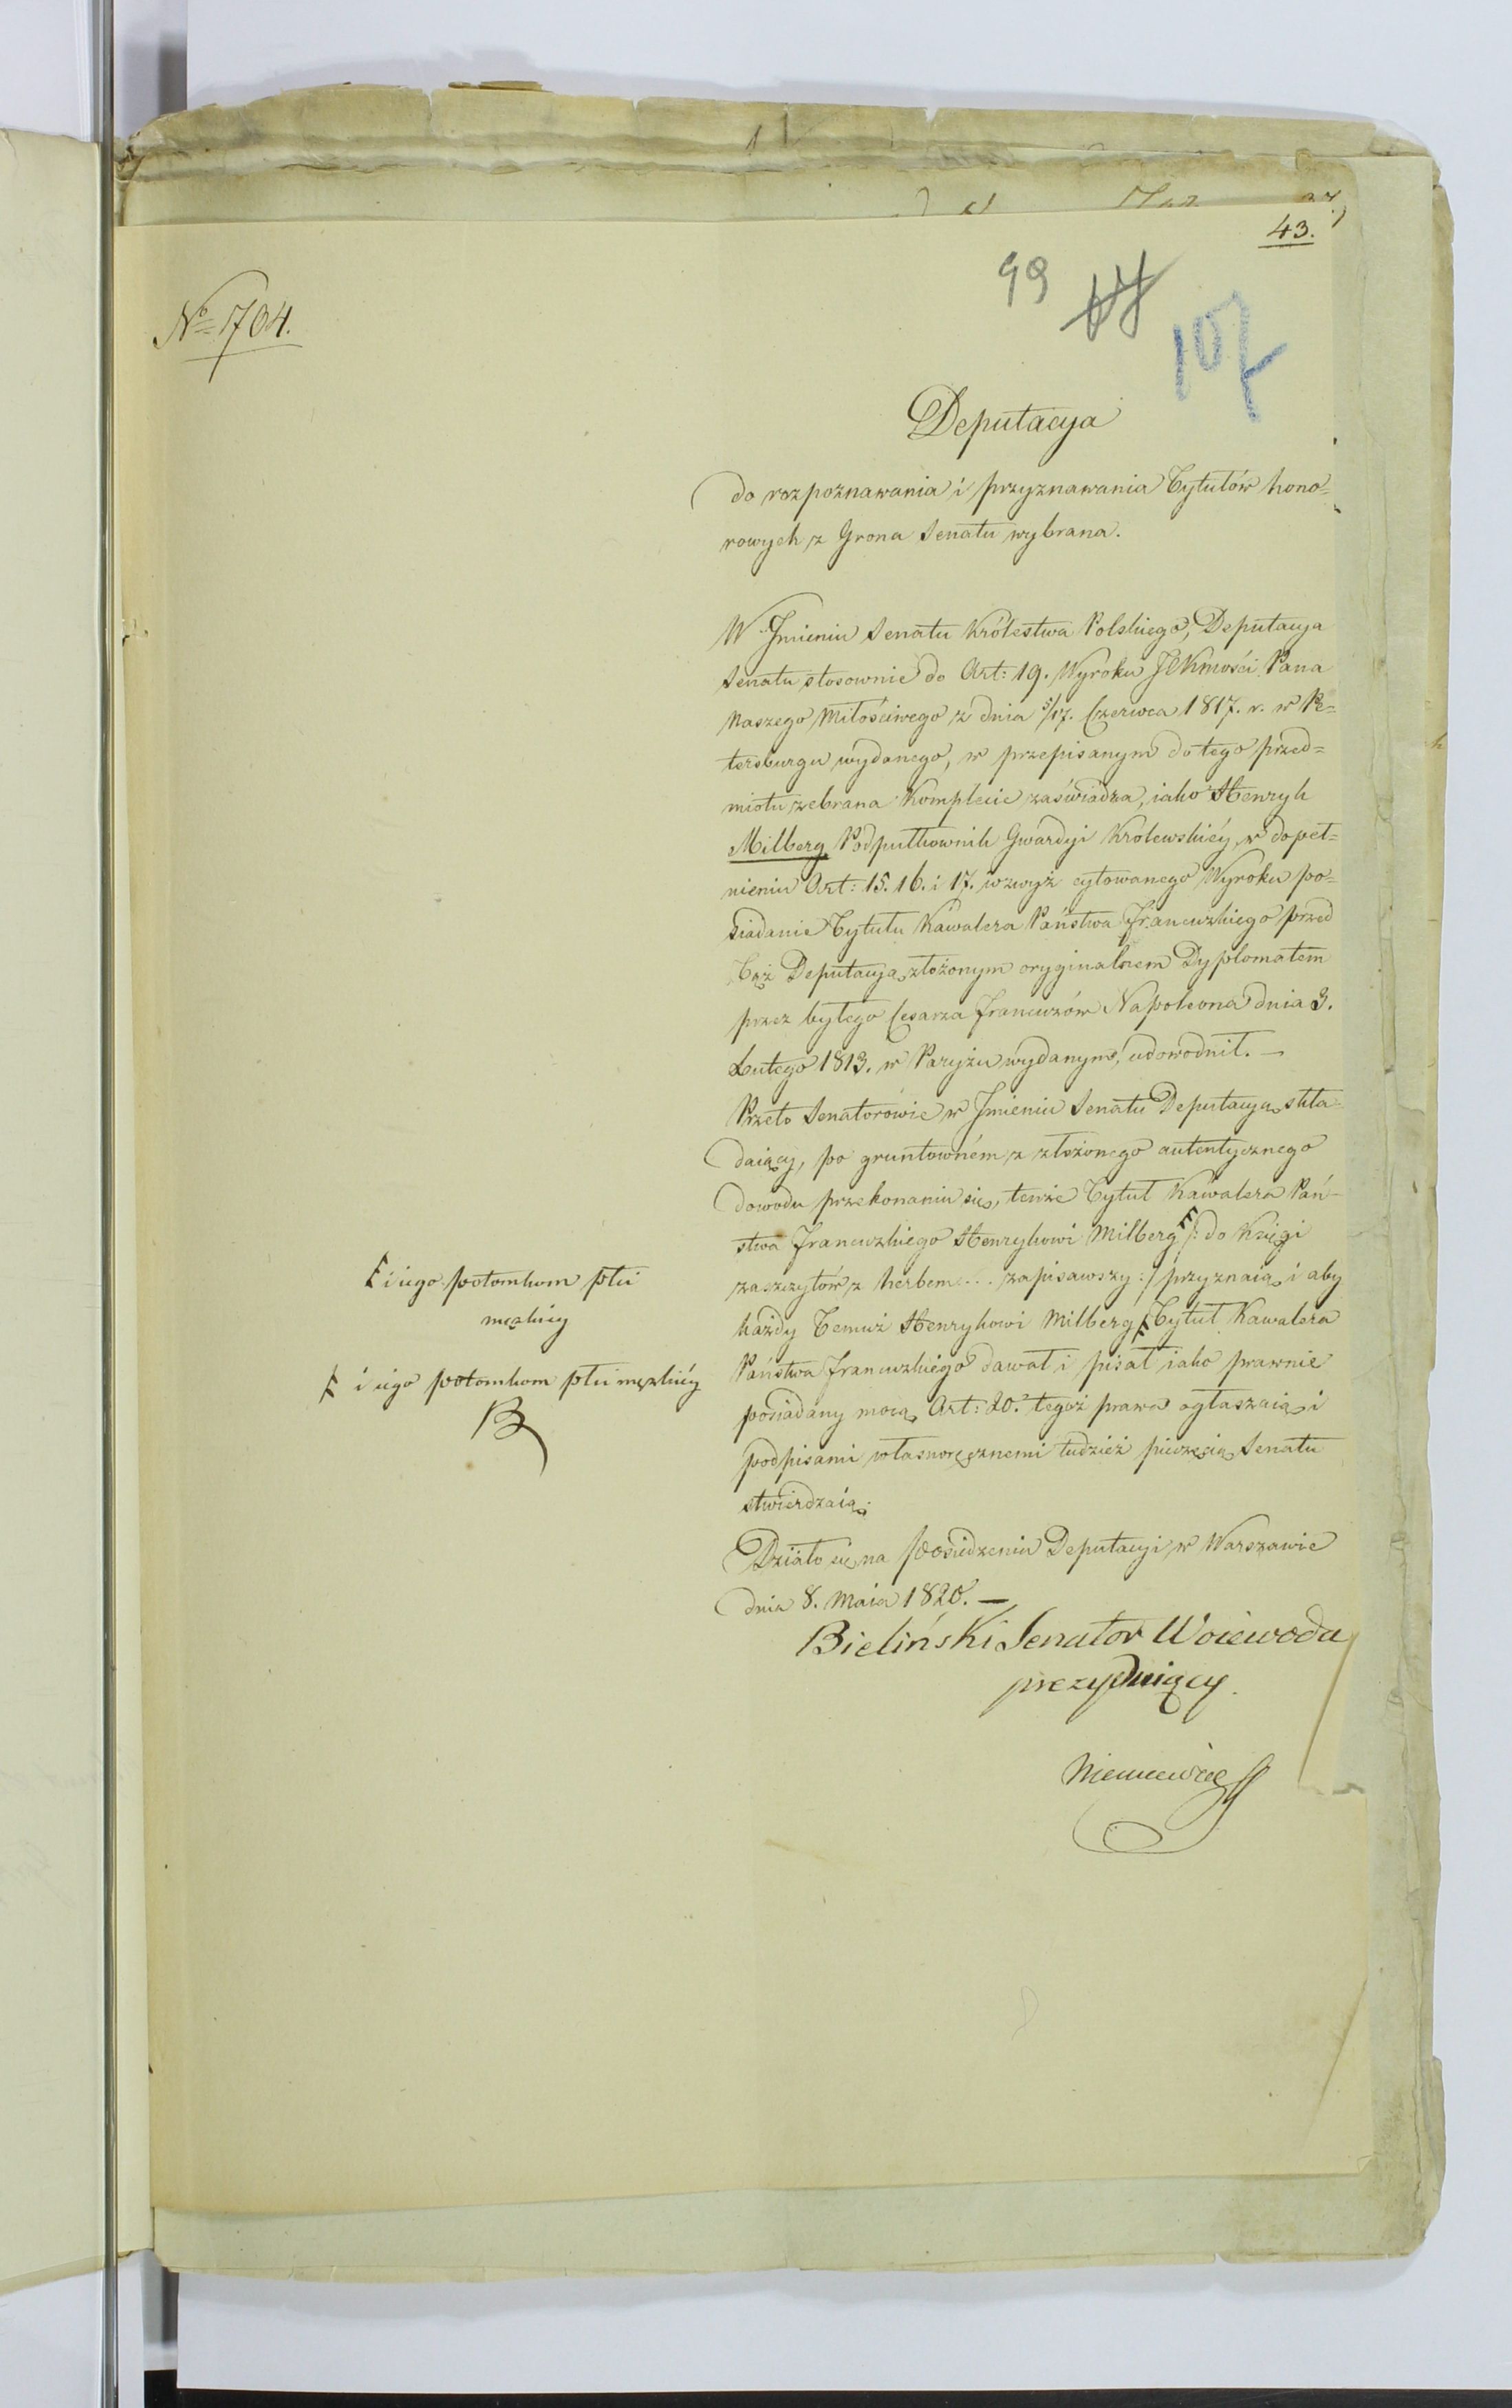 43.
99
107
№ 1704.
Deputacya
do rozpoznawania i przyznawania Tytułów hono=
rowych z Grona Senatu wybrana.
W Jmieniu Senatu Królestwa Polskiego, Deputacya
Senatu stosownie do Art: 19. Wyroku JKKmości Pana
Naszego Miłościwego z dnia 5/17. Czerwca 1817. r. w Pe=
tersburgu wydanego, w przepisanym do tego przed=
miotu zebrana Komplecie zaświadcza, iako Henryk
Milberg Podpułkownik Gwardyi Królewskiéy, w dopeł=
nieniu Art: 15. 16. i 17. wzwyż cytowanego Wyroku po=
siadanie Tytułu Kawalera Państwa Francuzkiego przed
Tąż Deputacyą złożonym oryginalnem Dyplomatem
przez byłego Cesarza Francuzów Napoleona dnia 3.
Lutego 1813. w Paryżu wydanym, udowodnił. —
Przeto Senatorowie w Jmieniu Senatu Deputacyą skła=
daiący, po gruntowném z złożonego autentycznego
dowodu przekonaniu się, tenże Tytuł Kawalera Pań=
stwa Francuzkiego Henrykowi Milberg /: do Xięgi
zaszczytów z herbem ... zapisawszy :/ przyznaią i aby
każdy Temuż Henrykowi Milberg Tytuł Kawalera
Państwa Francuzkiego dawał i pisał iako prawnie
posiadany mocą Art: 20. tegoż prawa ogłaszaią i
podpisami własnoręcznemi tudzież pieczęcią Senatu
stwierdzaią.
Działo się na Posiedzeniu Deputacyi w Warszawie
dnia 8. Maia 1820. —
i iego potomkom płci
męzkiéy
i iego potomkom płci męzkiéy
B
Bieliński Senator Woiewoda
prezyduiący.
Niemcewicz